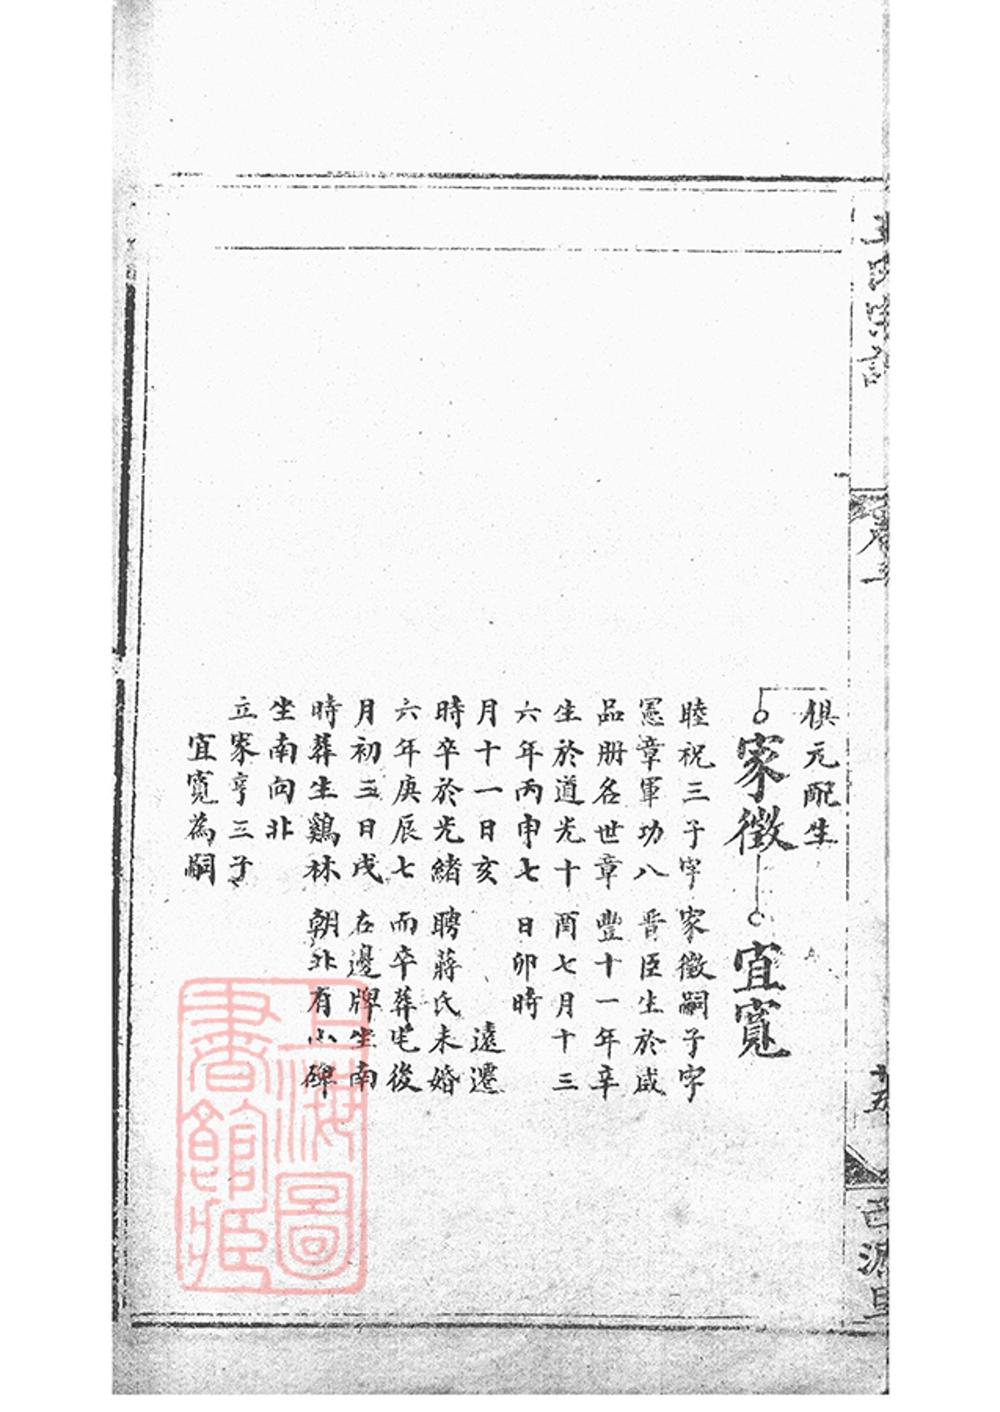 俱元配生
家徵
睦祝三子字
憲章軍功八
品册名世章
生於道光十
六年丙申七
月十一日亥
時卒於光緒
六年庚辰七
月初三日戌
時葬生鷄林
坐南向北
立家亨三子
宜寬為嗣
宜寬
家徵嗣子字
晋臣生於咸
豐十一年辛
酉七月十三
日卯時
遠遷
聘蔣氏未婚
而卒葬宅後
右邊牌坐南
朝北有小碑
十五
上海圖
書館藏